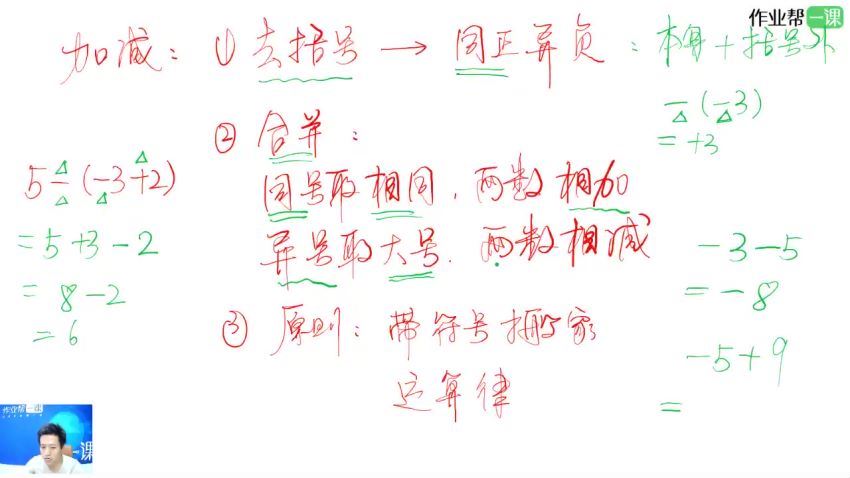 作业帮一课
加减：① 去括号 → 同正异负：本身 + 括号外
-(-3)
= +3
② 合并：
同号取相同，两数相加
异号取大号，两数相减
③ 原则：带符号搬家
运算律
5-(-3+2)
=5+3-2
=8-2
=6
-3-5
=-8
-5+9
=
作业帮一课
一课